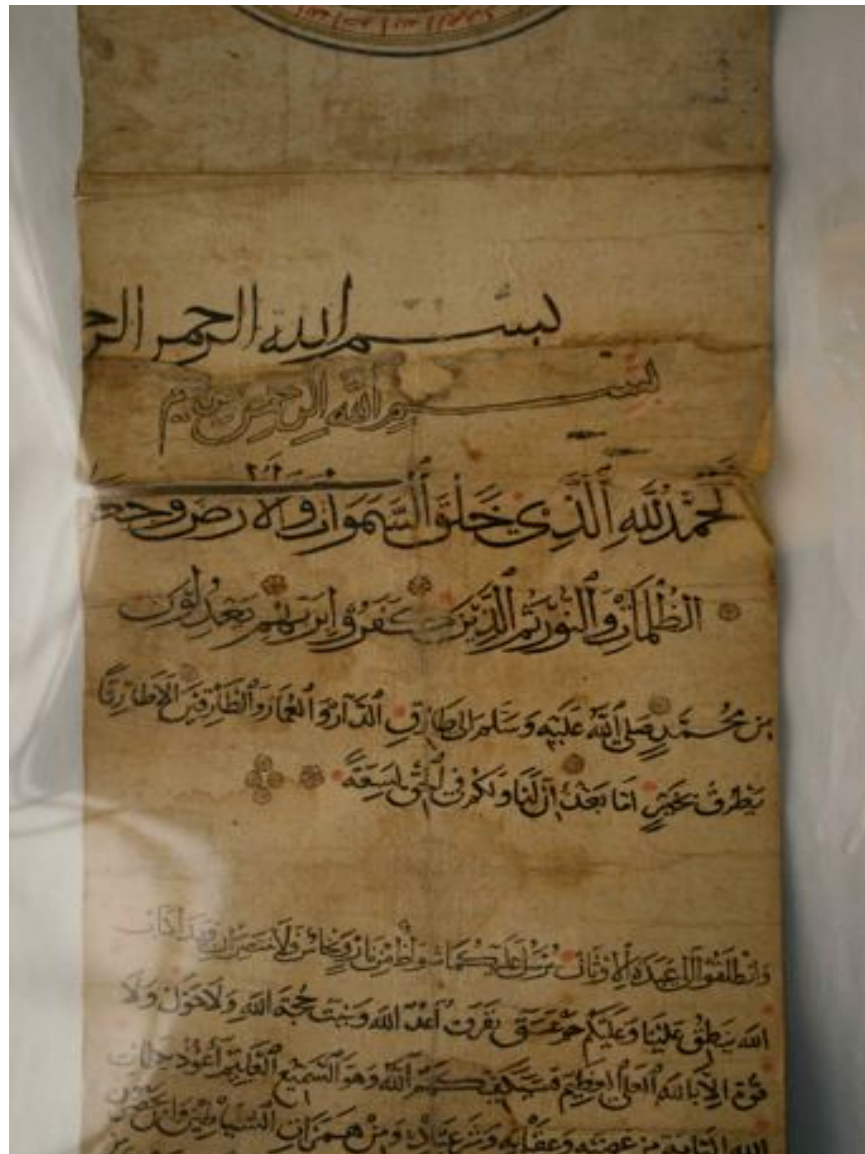 بسم الله الرحمن الرح
بسم الله الرحمن الرحيم
الحمد لله الذي خلق السموات والارض وجعل
الظلمات والنور ثم الذين كفروا بربهم يعدلون
من محمد صلى الله عليه وسلم الى طارق الدار والعمار والطارقين الا طارقا
يطرق بخير اما بعد ان لنا ولكم في الحق لسعة
وانطلقوا الى عبدة الاوثان يرسل عليكما شواظ من نار ونحاس فلا تنتصران
الله ينطق علينا وعليكم حم عسق تفرق اعد الله وبلغت حجة الله ولا حول ولا
قوة الا بالله العلي العظيم فسيكفيكهم الله وهو السميع العليم اعوذ بكلمات
الله التامة من غضبه وعقابه وشر عباده ومن همزات الشياطين وان يحضرون